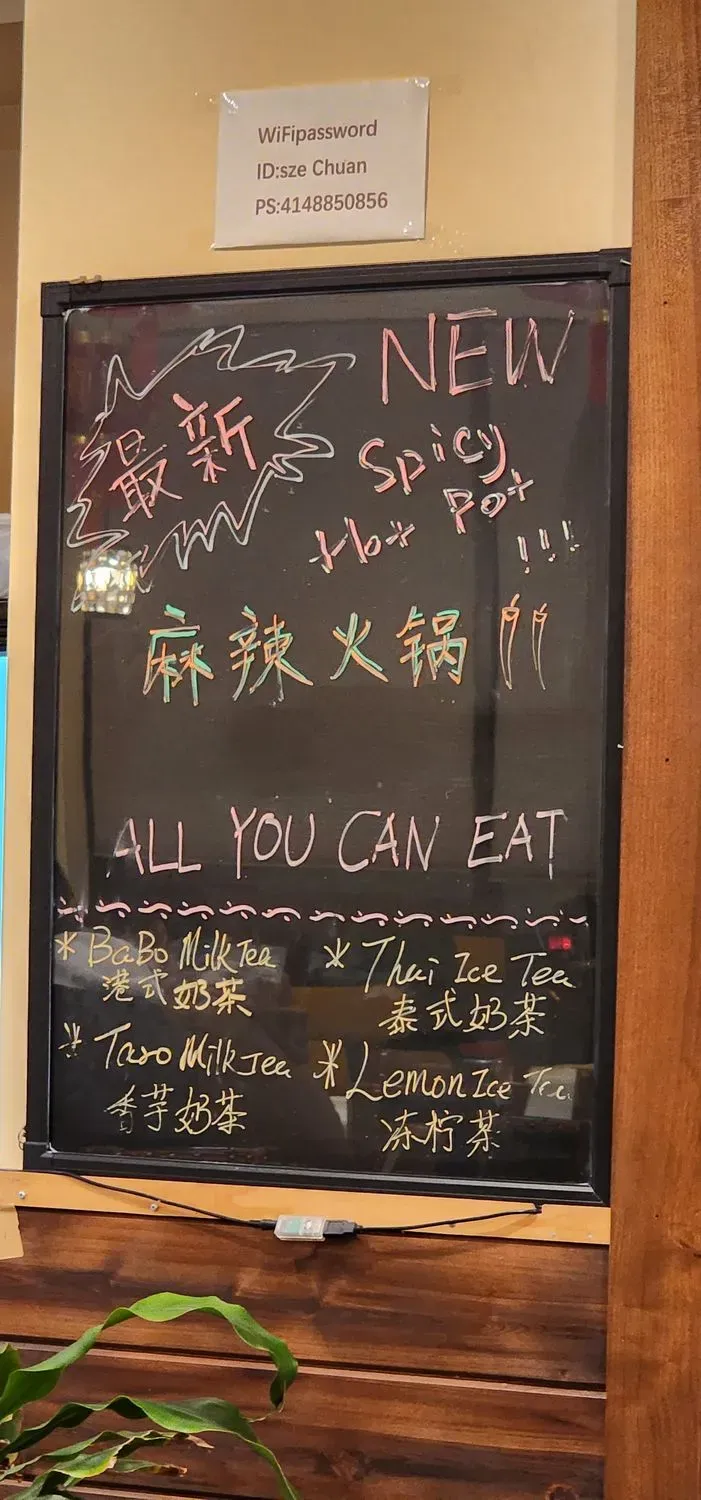 WiFipassword
ID:sze Chuan
PS:4148850856
最新
NEW
Spicy
Hot Pot
!!!
麻辣火锅
ALL YOU CAN EAT
*BaBo Milk Tea
港式奶茶
*Thai Ice Tea
泰式奶茶
*Taro Milk Tea
香芋奶茶
*Lemon Ice Tea
冻柠茶